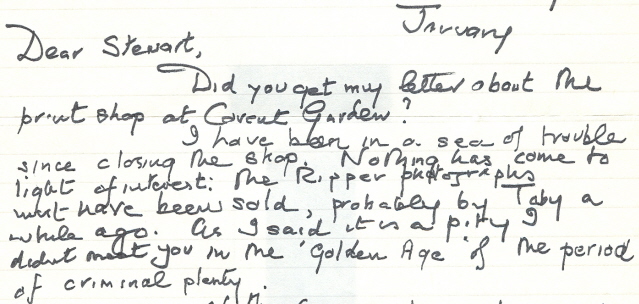 January
Dear Stewart,
Did you get my letter about the
print shop at Covent Garden?
I have been in a sea of trouble
since closing the shop. Nothing has come to
light of interest: the Ripper photographs
must have been sold, probably by Taby a
while ago. As I said it is a pity I
didnt meet you in the 'Golden Age' of the period
of criminal plenty.